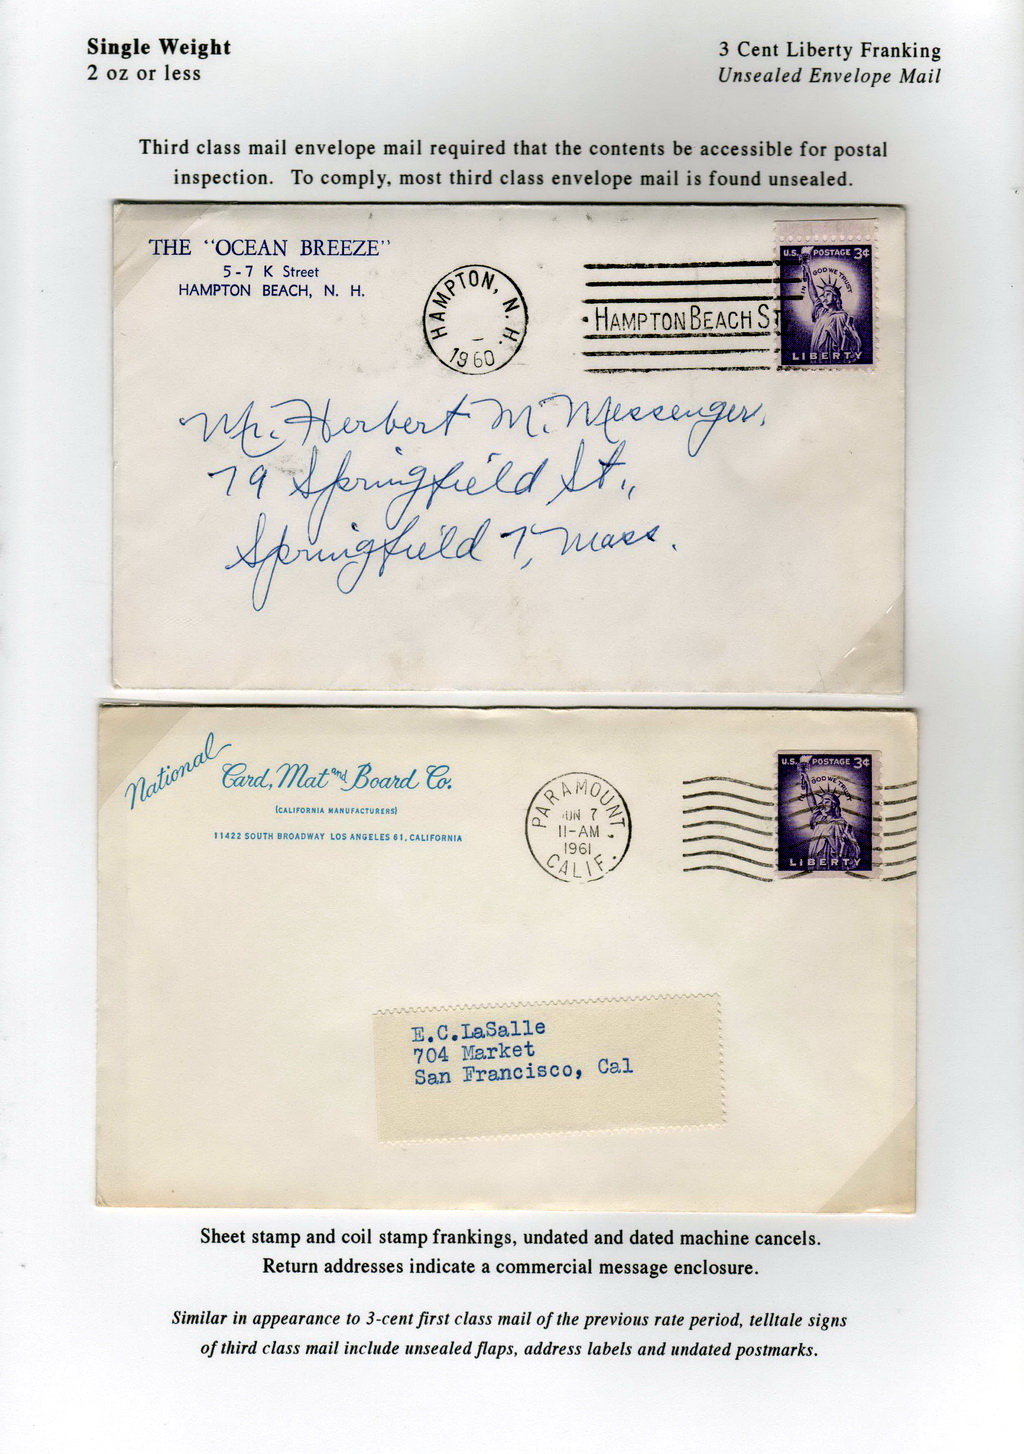 Single Weight
2 oz or less
3 Cent Liberty Franking
Unsealed Envelope Mail
Third class mail envelope mail required that the contents be accessible for postal
inspection. To comply, most third class envelope mail is found unsealed.
THE "OCEAN BREEZE"
5-7 K Street
HAMPTON BEACH, N. H.
HAMPTON, N. H.
1960
HAMPTON BEACH
U.S. POSTAGE 3¢
IN GOD WE TRUST
LIBERTY
Mr. Herbert M. Messenger,
79 Springfield St.,
Springfield 7, Mass.
National
Card, Mat and Board Co.
(CALIFORNIA MANUFACTURERS)
11422 SOUTH BROADWAY LOS ANGELES 61, CALIFORNIA
PARAMOUNT, CALIF.
JUN 7
11-AM
1961
U.S. POSTAGE 3¢
IN GOD WE TRUST
LIBERTY
E.C.LaSalle
704 Market
San Francisco, Cal
Sheet stamp and coil stamp frankings, undated and dated machine cancels.
Return addresses indicate a commercial message enclosure.
Similar in appearance to 3-cent first class mail of the previous rate period, telltale signs
of third class mail include unsealed flaps, address labels and undated postmarks.